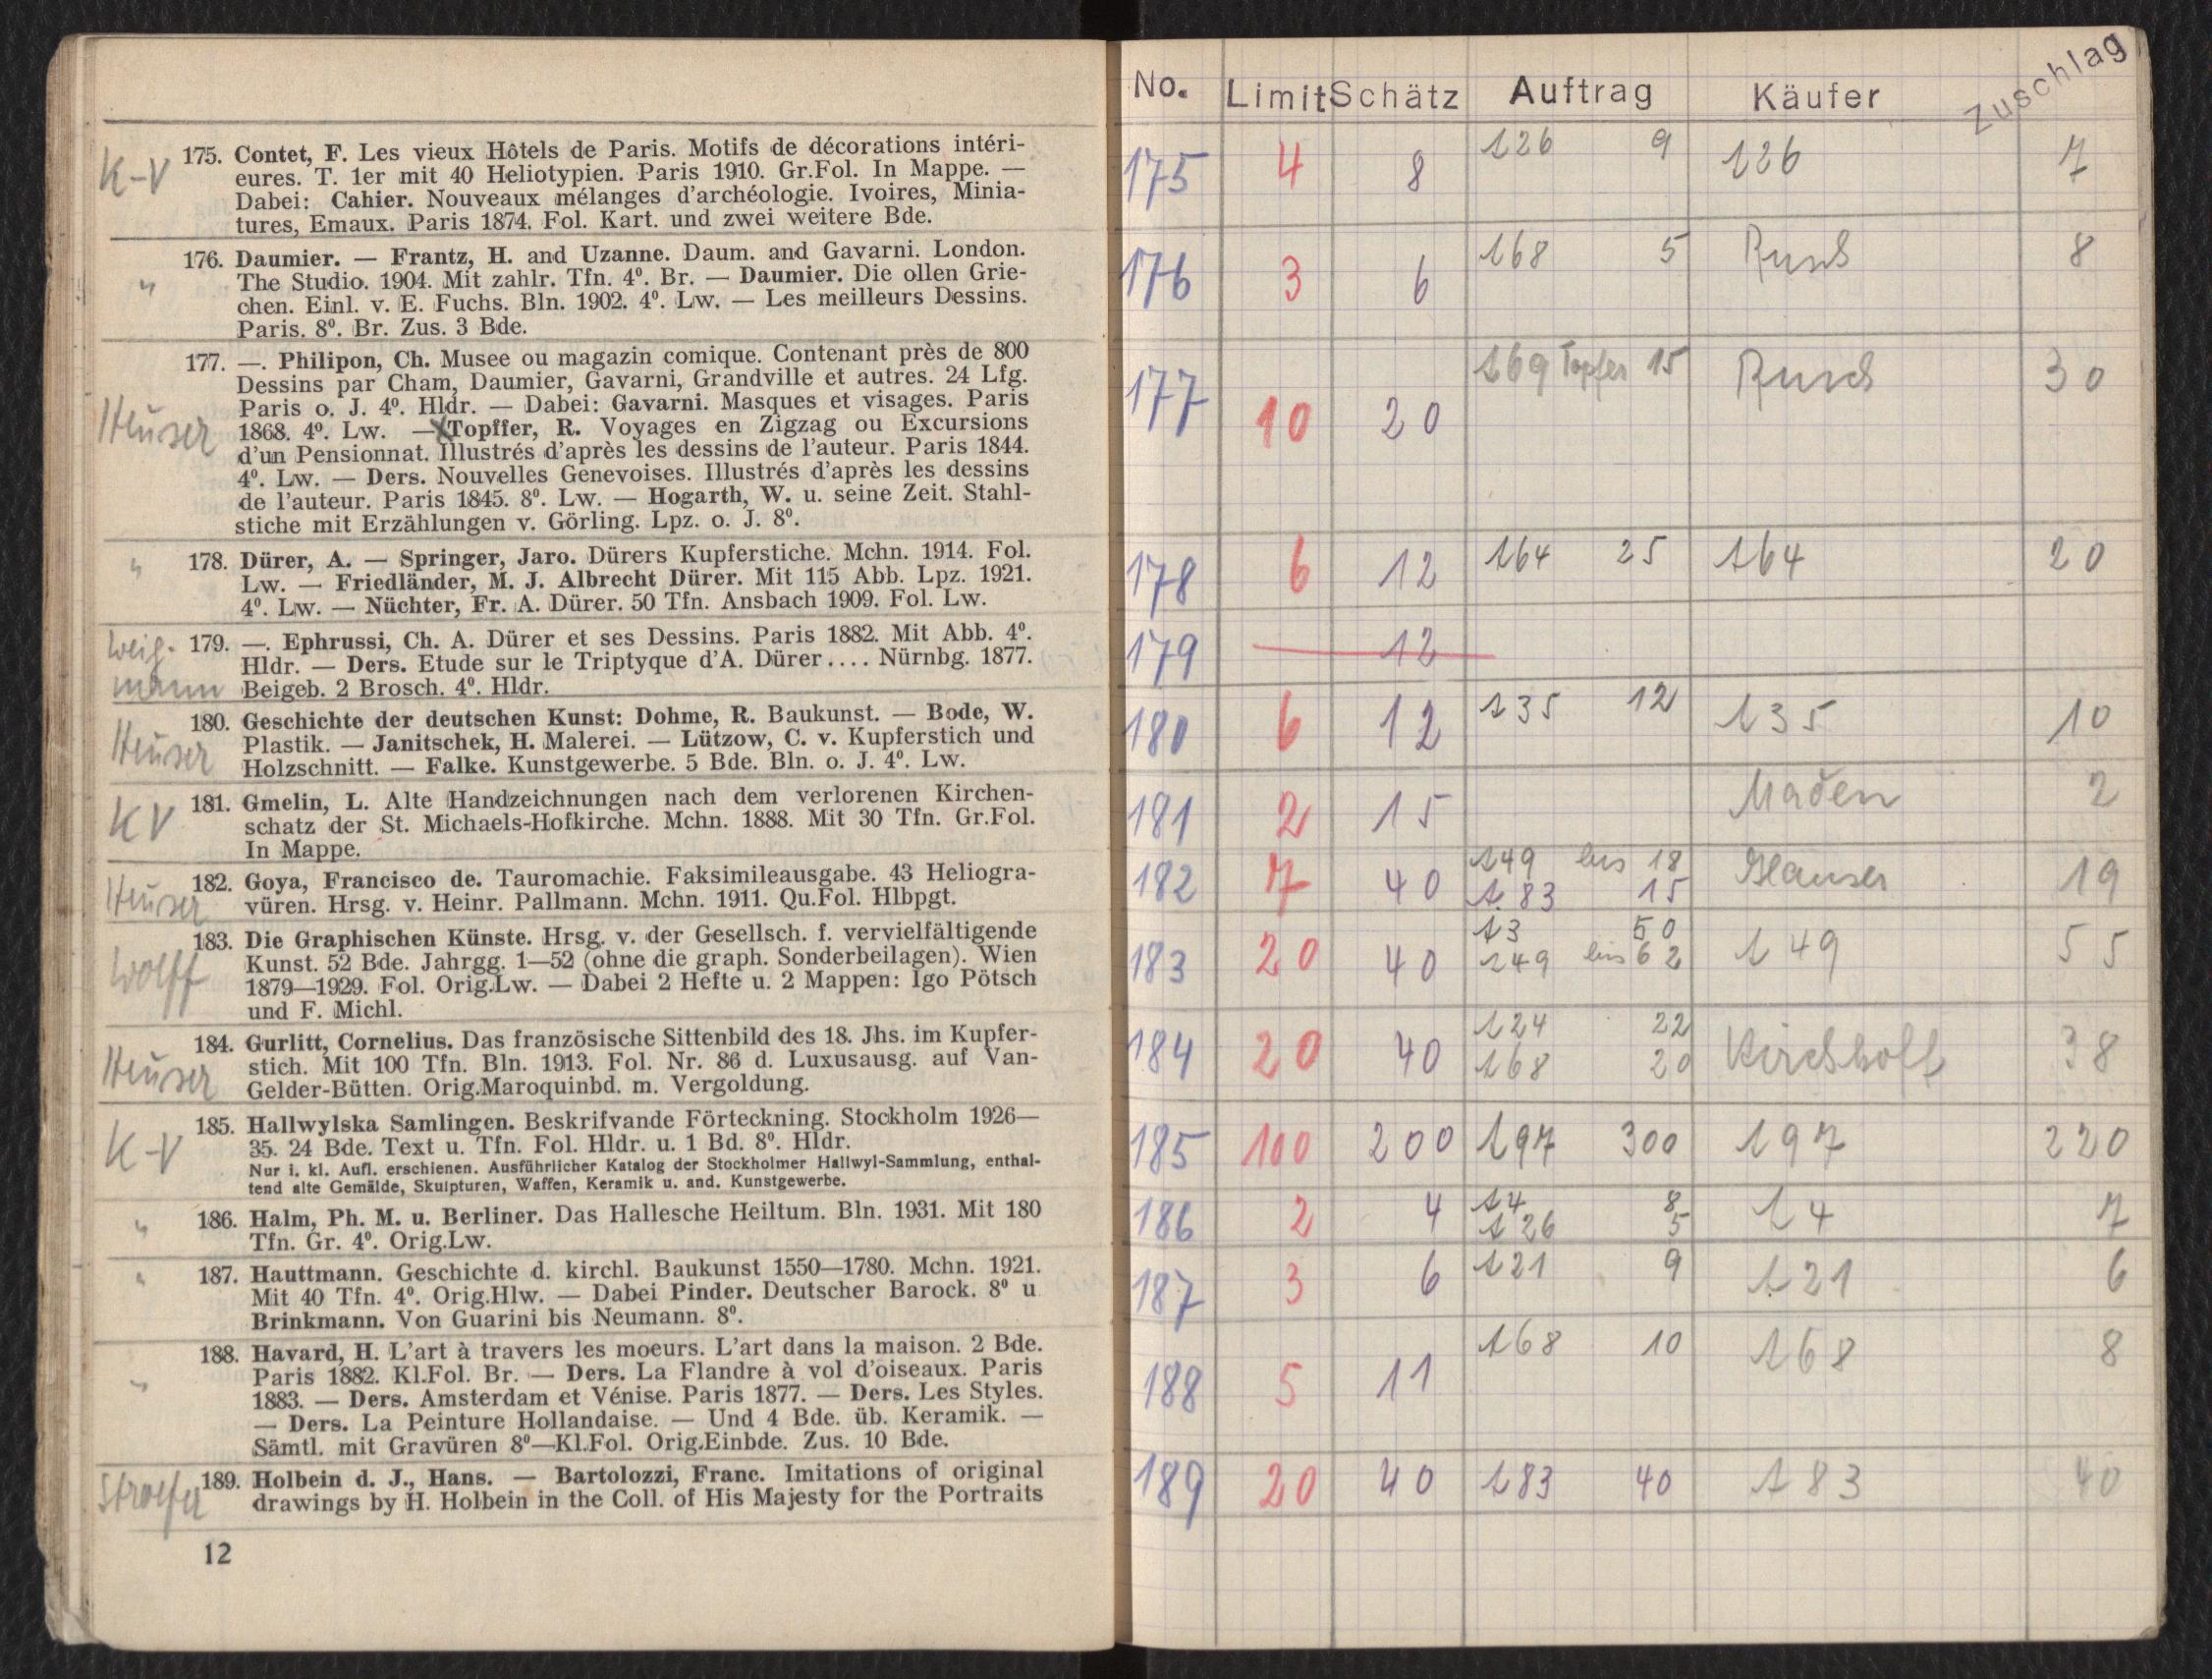 K-V 175. Contet, F. Les vieux Hôtels de Paris. Motifs de décorations intéri-
eures. T. 1er mit 40 Heliotypien. Paris 1910. Gr.Fol. In Mappe. —
Dabei: Cahier. Nouveaux mélanges d'archéologie. Ivoires, Minia-
tures, Emaux. Paris 1874. Fol. Kart. und zwei weitere Bde.
" 176. Daumier. — Frantz, H. and Uzanne. Daum. and Gavarni. London.
The Studio. 1904. Mit zahlr. Tfn. 4⁰. Br. — Daumier. Die ollen Grie-
chen. Einl. v. E. Fuchs. Bln. 1902. 4⁰. Lw. — Les meilleurs Dessins.
Paris. 8⁰. Br. Zus. 3 Bde.
177. —. Philipon, Ch. Musee ou magazin comique. Contenant près de 800
Dessins par Cham, Daumier, Gavarni, Grandville et autres. 24 Lfg.
Paris o. J. 4⁰. Hldr. — Dabei: Gavarni. Masques et visages. Paris
Heuser 1868. 4⁰. Lw. — Topffer, R. Voyages en Zigzag ou Excursions
d'un Pensionnat. Illustrés d'après les dessins de l'auteur. Paris 1844.
4⁰. Lw. — Ders. Nouvelles Genevoises. Illustrés d'après les dessins
de l'auteur. Paris 1845. 8⁰. Lw. — Hogarth, W. u. seine Zeit. Stahl-
stiche mit Erzählungen v. Görling. Lpz. o. J. 8⁰.
" 178. Dürer, A. — Springer, Jaro. Dürers Kupferstiche. Mchn. 1914. Fol.
Lw. — Friedländer, M. J. Albrecht Dürer. Mit 115 Abb. Lpz. 1921.
4⁰. Lw. — Nüchter, Fr. A. Dürer. 50 Tfn. Ansbach 1909. Fol. Lw.
Weig- 179. —. Ephrussi, Ch. A. Dürer et ses Dessins. Paris 1882. Mit Abb. 4⁰.
Hldr. — Ders. Etude sur le Triptyque d'A. Dürer.... Nürnbg. 1877.
mann Beigeb. 2 Brosch. 4⁰. Hldr.
180. Geschichte der deutschen Kunst: Dohme, R. Baukunst. — Bode, W.
Heuser Plastik. — Janitschek, H. Malerei. — Lützow, C. v. Kupferstich und
Holzschnitt. — Falke. Kunstgewerbe. 5 Bde. Bln. o. J. 4⁰. Lw.
KV 181. Gmelin, L. Alte Handzeichnungen nach dem verlorenen Kirchen-
schatz der St. Michaels-Hofkirche. Mchn. 1888. Mit 30 Tfn. Gr.Fol.
In Mappe.
182. Goya, Francisco de. Tauromachie. Faksimileausgabe. 43 Heliogra-
Heuser vüren. Hrsg. v. Heinr. Pallmann. Mchn. 1911. Qu.Fol. Hlbpgt.
183. Die Graphischen Künste. Hrsg. v. der Gesellsch. f. vervielfältigende
Wolff Kunst. 52 Bde. Jahrgg. 1—52 (ohne die graph. Sonderbeilagen). Wien
1879—1929. Fol. Orig.Lw. — Dabei 2 Hefte u. 2 Mappen: Igo Pötsch
und F. Michl.
184. Gurlitt, Cornelius. Das französische Sittenbild des 18. Jhs. im Kupfer-
Heuser stich. Mit 100 Tfn. Bln. 1913. Fol. Nr. 86 d. Luxusausg. auf Van-
Gelder-Bütten. Orig.Maroquinbd. m. Vergoldung.
K-V 185. Hallwylska Samlingen. Beskrifvande Förteckning. Stockholm 1926—
35. 24 Bde. Text u. Tfn. Fol. Hldr. u. 1 Bd. 8⁰. Hldr.
Nur i. kl. Aufl. erschienen. Ausführlicher Katalog der Stockholmer Hallwyl-Sammlung, enthal-
tend alte Gemälde, Skulpturen, Waffen, Keramik u. and. Kunstgewerbe.
" 186. Halm, Ph. M. u. Berliner. Das Hallesche Heiltum. Bln. 1931. Mit 180
Tfn. Gr. 4⁰. Orig.Lw.
" 187. Hauttmann. Geschichte d. kirchl. Baukunst 1550—1780. Mchn. 1921.
Mit 40 Tfn. 4⁰. Orig.Hlw. — Dabei Pinder. Deutscher Barock. 8⁰ u
Brinkmann. Von Guarini bis Neumann. 8⁰.
" 188. Havard, H. L'art à travers les moeurs. L'art dans la maison. 2 Bde.
Paris 1882. Kl.Fol. Br. — Ders. La Flandre à vol d'oiseaux. Paris
1883. — Ders. Amsterdam et Vénise. Paris 1877. — Ders. Les Styles.
— Ders. La Peinture Hollandaise. — Und 4 Bde. üb. Keramik. —
Sämtl. mit Gravüren 8⁰—Kl.Fol. Orig.Einbde. Zus. 10 Bde.
Stroefer 189. Holbein d. J., Hans. — Bartolozzi, Franc. Imitations of original
drawings by H. Holbein in the Coll. of His Majesty for the Portraits
12
No. Limit Schätz Auftrag Käufer Zuschlag
175 4 8 126 9 126 7
176 3 6 168 5 Rusch 8
177 10 20 169 Topfer 15 Rusch 30
178 6 12 164 25 164 20
179 12
180 6 12 135 12 135 10
181 2 15 2
182 7 40 149 bis 18 19
183 15
183 20 40 13 50 149 55
149 bis 62
184 20 40 124 22 Kirchhoff 38
168 20
185 100 200 197 300 197 220
186 2 4 14 8 14 7
126 5
187 3 6 121 9 121 6
188 5 11 168 10 168 8
189 20 40 183 40 183 40